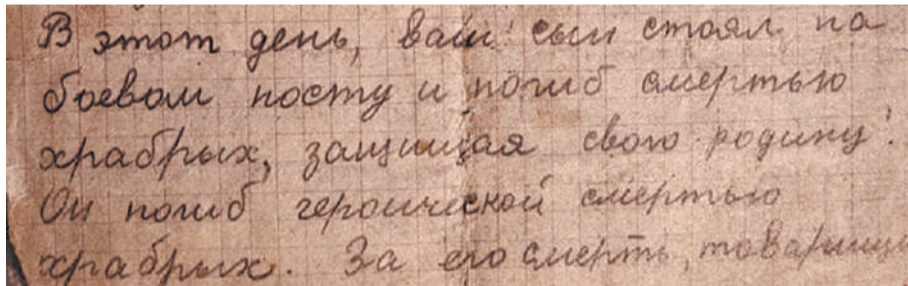 В этот день, ваш сын стоял на
боевом посту и погиб смертью
храбрых, защищая свою родину!
Он погиб героической смертью
храбрых. За его смерть, товарищи